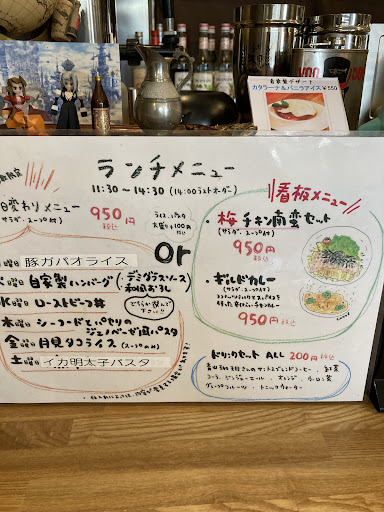 自家製デザート
カタラーナ&バニラアイス ¥550
ランチメニュー
11:30〜14:30 (14:00ラストオーダー)
変わりメニュー
(サラダ、スープ付)
950円
税込
ライス、パスタ
大盛り+100円
豚ガパオライス
自家製ハンバーグ
(・デミグラスソース
・和風おろし
水曜日 ローストビーフ丼
どちらか選んで下さい!!
木曜日 シーフードとパセリの
ジェノベーゼ風パスタ
金曜日 月見タコライス (スープのみ)
土曜日 イカ明太子パスタ
or
看板メニュー
・梅チキン南蛮セット
(サラダ、スープ付)
950円 税込
・ギルドカレー
(サラダ、スープ付)
950円 税込
ドリンクセット ALL 200円 税込
コーラ、ジンジャーエール、オレンジ
グレープフルーツ、トニックウォーター